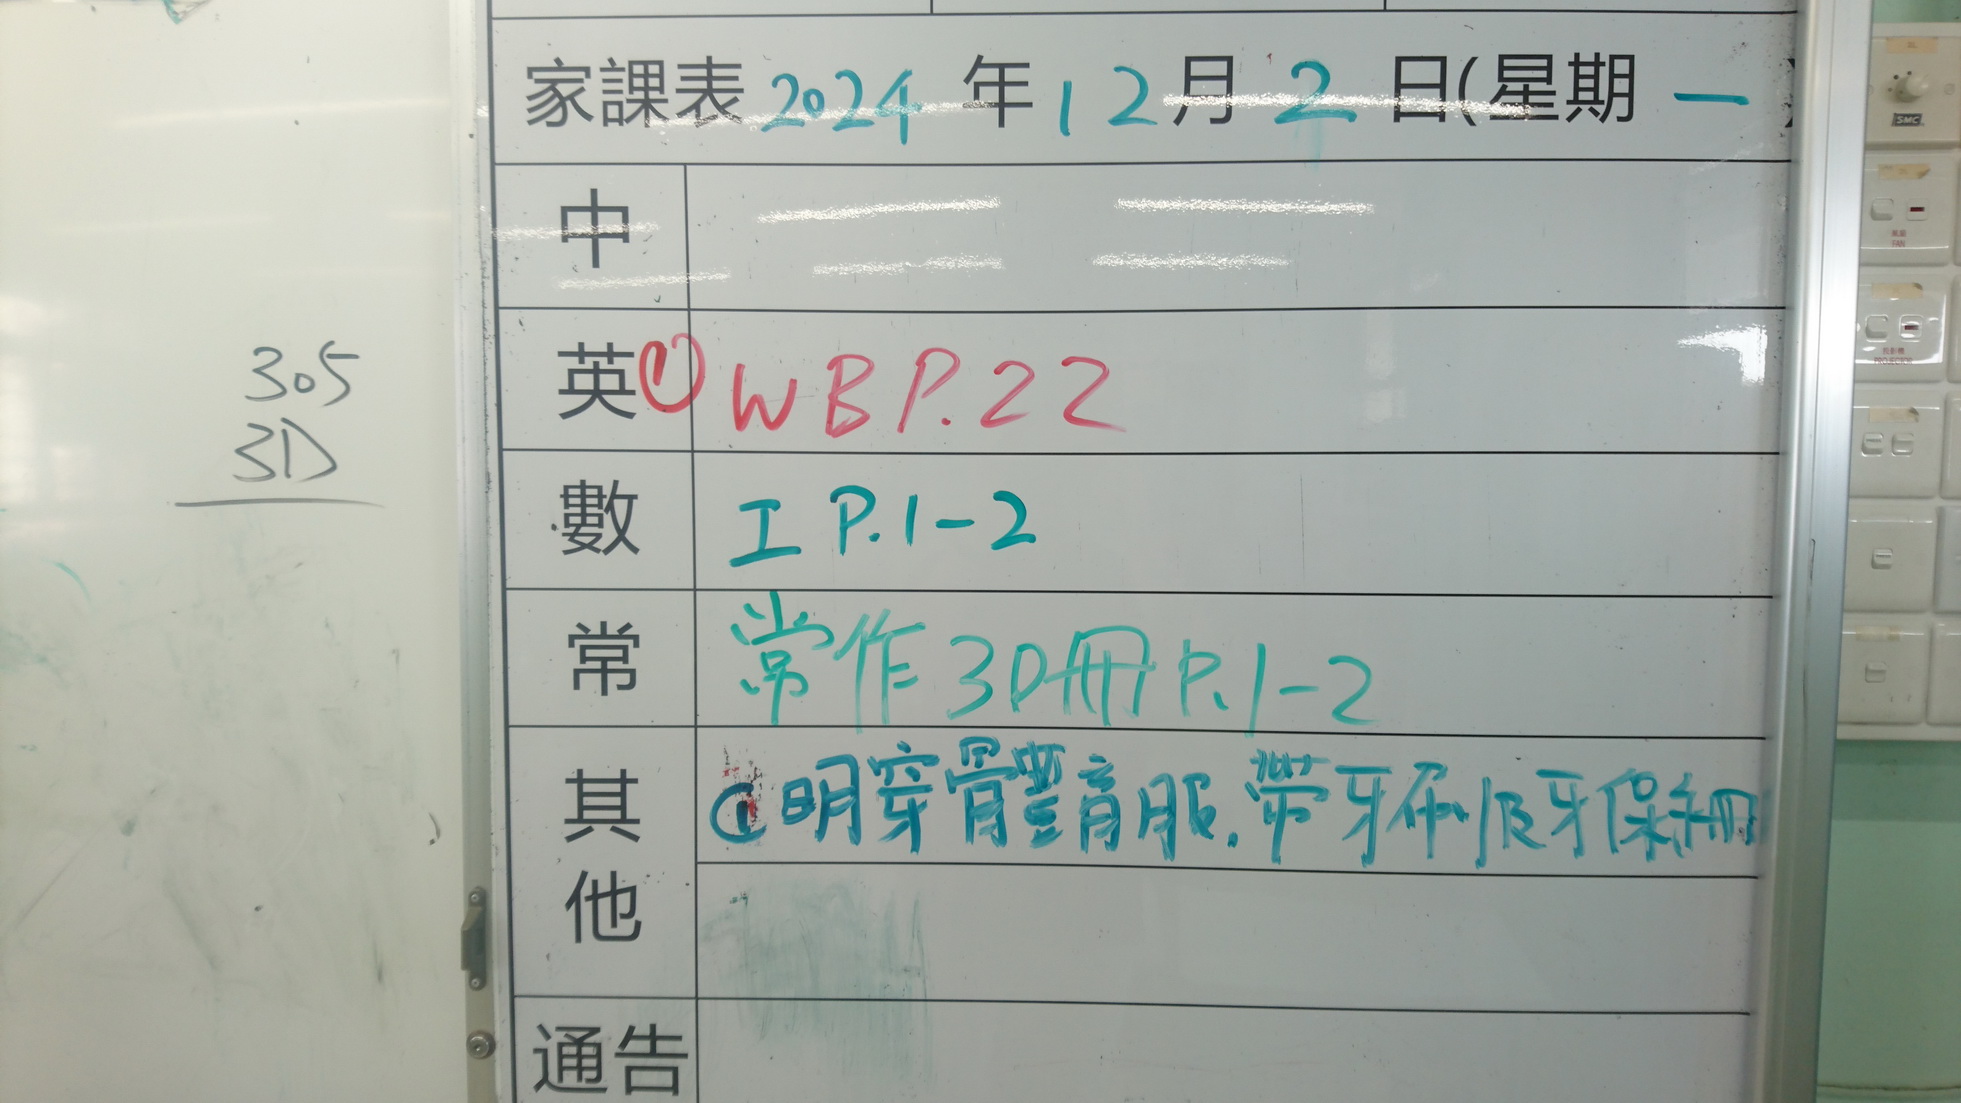 家課表 2024 年 12 月 2 日(星期 一 )
305
3D
中
英 ① WB P.22
數 工 P.1-2
常 常作 3D冊 P.1-2
其他 ① 明穿體育服.帶牙刷及牙保冊
通告
SMC
風扇
FAN
投影機
PROJECTOR